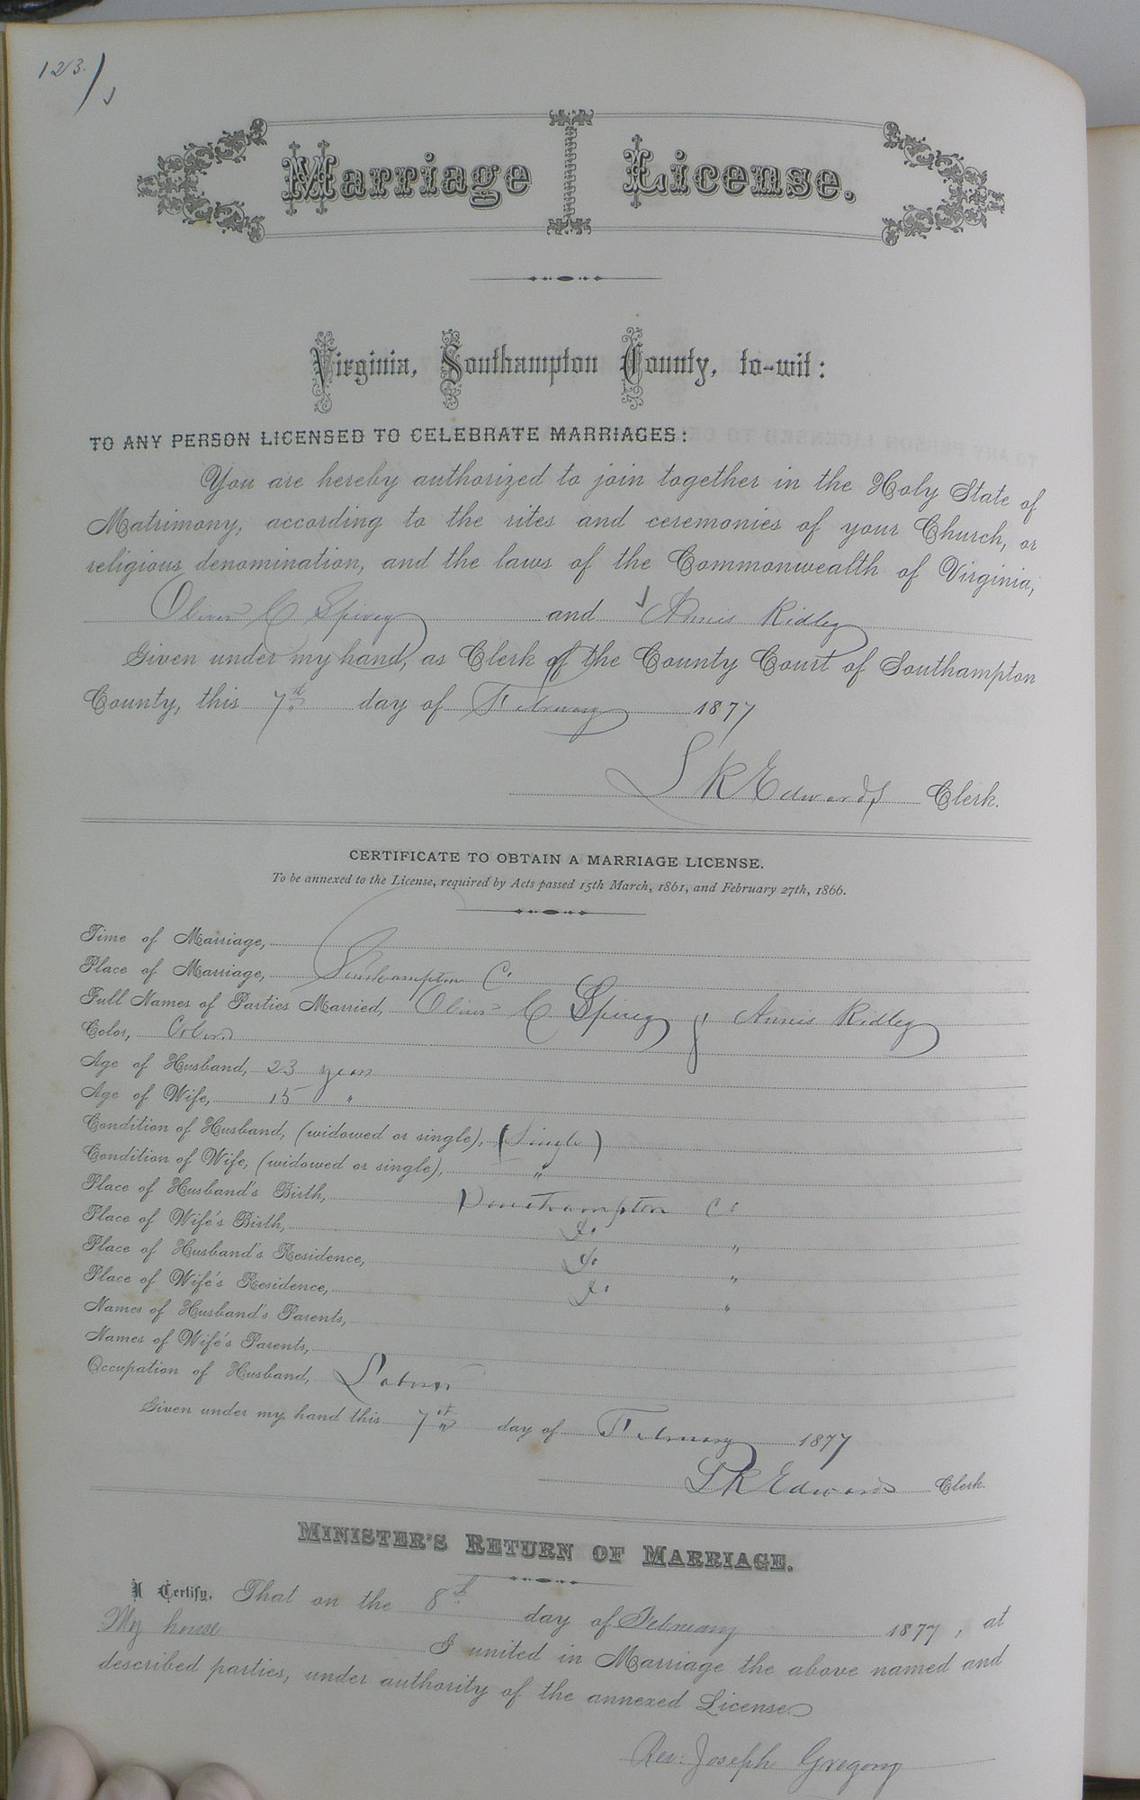 123.
Marriage License.
Virginia, Southampton County, to-wit:
TO ANY PERSON LICENSED TO CELEBRATE MARRIAGES:
You are hereby authorized to join together in the Holy State of
Matrimony, according to the rites and ceremonies of your Church, or
religious denomination, and the laws of the Commonwealth of Virginia,
Oliver C Spivey and Annis Ridley
Given under my hand, as Clerk of the County Court of Southampton
County, this 7th day of February 1877
L R Edwards Clerk.
CERTIFICATE TO OBTAIN A MARRIAGE LICENSE.
To be annexed to the License, required by Acts passed 15th March, 1861, and February 27th, 1866.
Time of Marriage,
Place of Marriage, Southampton Co
Full Names of Parties Married, Oliver C Spivey & Annis Ridley
Color, Colored
Age of Husband, 23 years
Age of Wife, 15 "
Condition of Husband, (widowed or single), (Single)
Condition of Wife, (widowed or single), "
Place of Husband's Birth, Southampton Co
Place of Wife's Birth, Do "
Place of Husband's Residence, Do "
Place of Wife's Residence, Do "
Names of Husband's Parents,
Names of Wife's Parents,
Occupation of Husband, Laborer
Given under my hand this 7th day of February 1877
L R Edwards Clerk.
MINISTER'S RETURN OF MARRIAGE.
I Certify, That on the 8th day of February 1877, at
My house I united in Marriage the above named and
described parties, under authority of the annexed License
Rev. Joseph Gregory